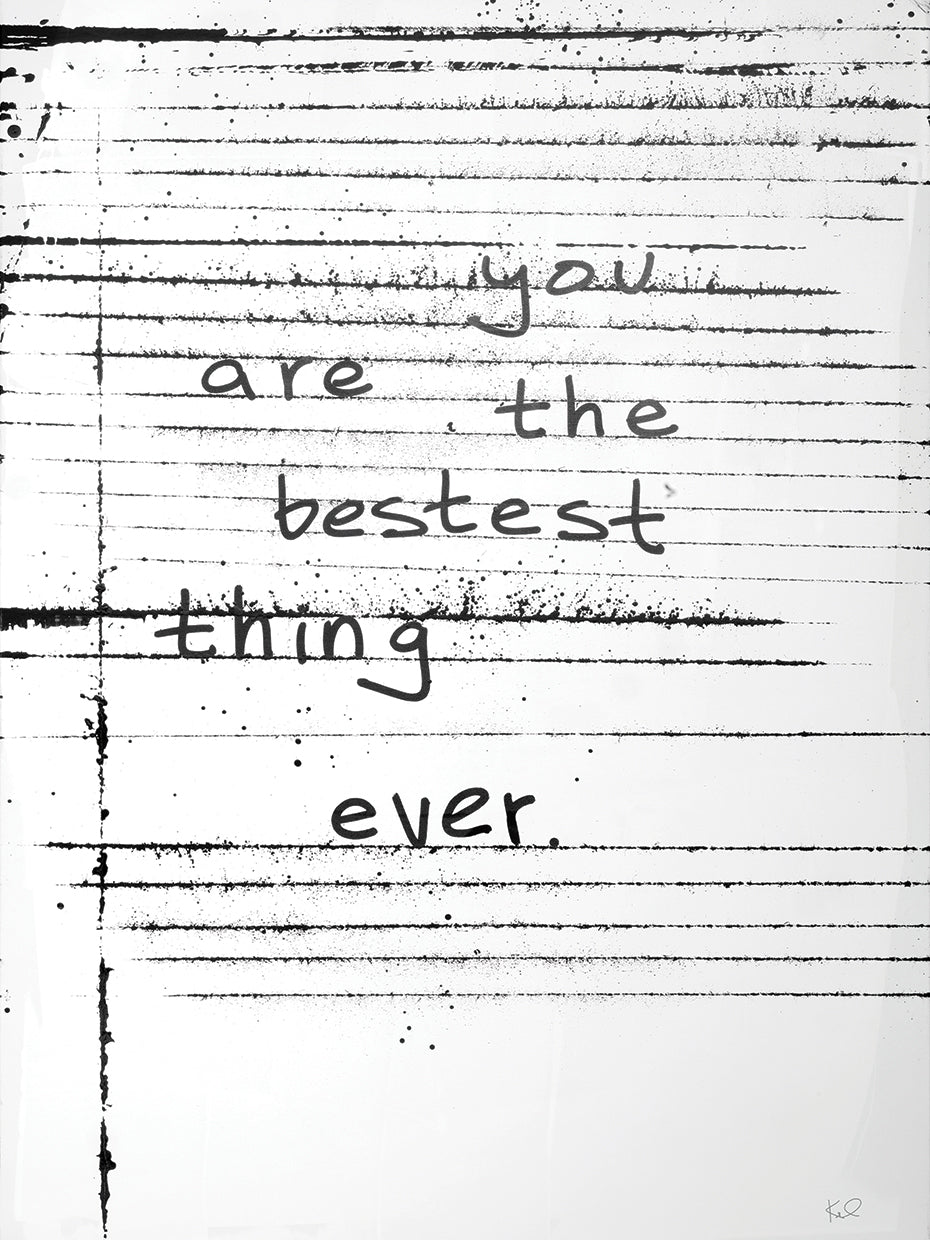 you
are the
bestest
thing
ever.